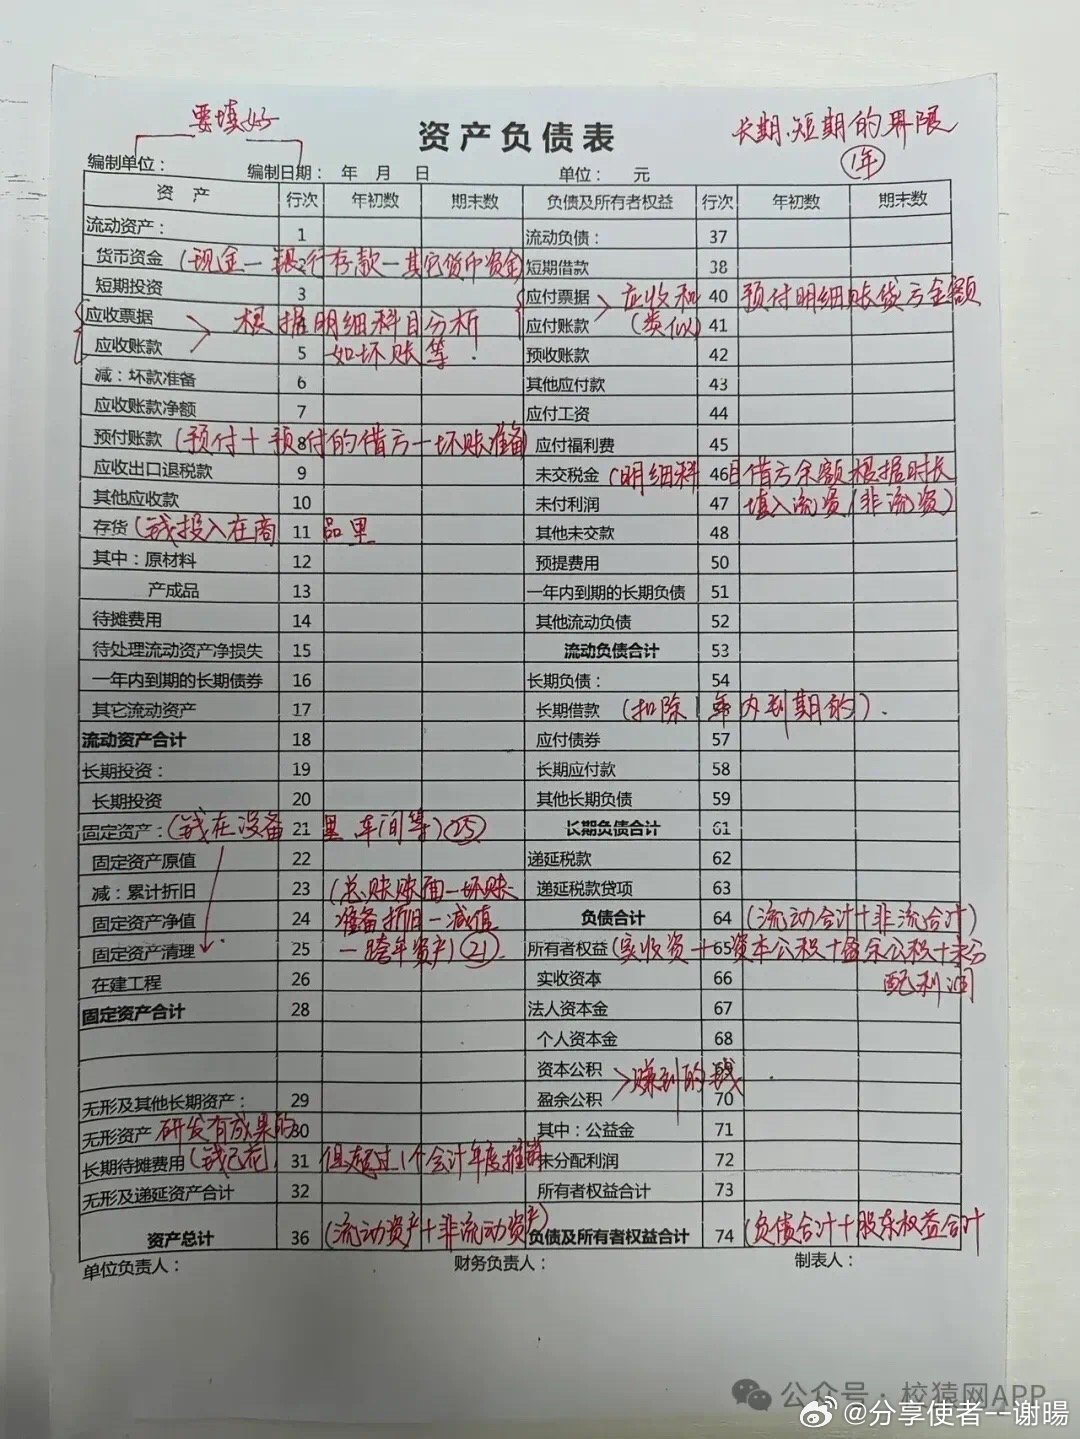 要填好
资产负债表
长期、短期的界限
1年
编制单位： 编制日期： 年 月 日 单位： 元
资 产 行次 年初数 期末数 负债及所有者权益 行次 年初数 期末数
流动资产： 1 流动负债： 37
货币资金 (现金—银行存款—其它货币资金) 短期借款 38
短期投资 3 应付票据 > 应收和 40 预付明细账贷方金额
应收票据 > 根据明细科目分析 应付账款 (类似) 41
应收账款 5 如坏账等. 预收账款 42
减：坏款准备 6 其他应付款 43
应收账款净额 7 应付工资 44
预付账款 (预付+预付的借方—坏账准备) 8 应付福利费 45
应收出口退税款 9 未交税金 (明细科 46 目借方余额根据时长
其他应收款 10 未付利润 47 填入流资/非流资)
存货 (钱投入在商 11 品里 其他未交款 48
其中：原材料 12 预提费用 50
产成品 13 一年内到期的长期负债 51
待摊费用 14 其他流动负债 52
待处理流动资产净损失 15 流动负债合计 53
一年内到期的长期债券 16 长期负债： 54
其它流动资产 17 长期借款 (扣除1年内到期的).
流动资产合计 18 应付债券 57
长期投资： 19 长期应付款 58
长期投资 20 其他长期负债 59
固定资产： (钱在设备 21 里 车间等) 25 长期负债合计 61
固定资产原值 22 递延税款 62
减：累计折旧 23 (总账账面—坏账 递延税款贷项 63
固定资产净值 24 准备折旧—减值 负债合计 64 (流动合计+非流合计)
固定资产清理 25 —跨年资产) 21. 所有者权益 (实收资 65 +资本公积+盈余公积+未分
在建工程 26 实收资本 66 配利润
固定资产合计 28 法人资本金 67
个人资本金 68
资本公积 69
> 赚到的钱.
无形及其他长期资产： 29 盈余公积 70
无形资产 研发有成果的 30 其中：公益金 71
长期待摊费用 (钱已花, 31 但超过1个会计年度摊销 未分配利润 72
无形及递延资产合计 32 所有者权益合计 73
资产总计 36 (流动资产+非流动资产) 负债及所有者权益合计 74 (负债合计+股东权益合计
单位负责人： 财务负责人： 制表人：
公众号·校猿网APP
@分享使者--谢暘